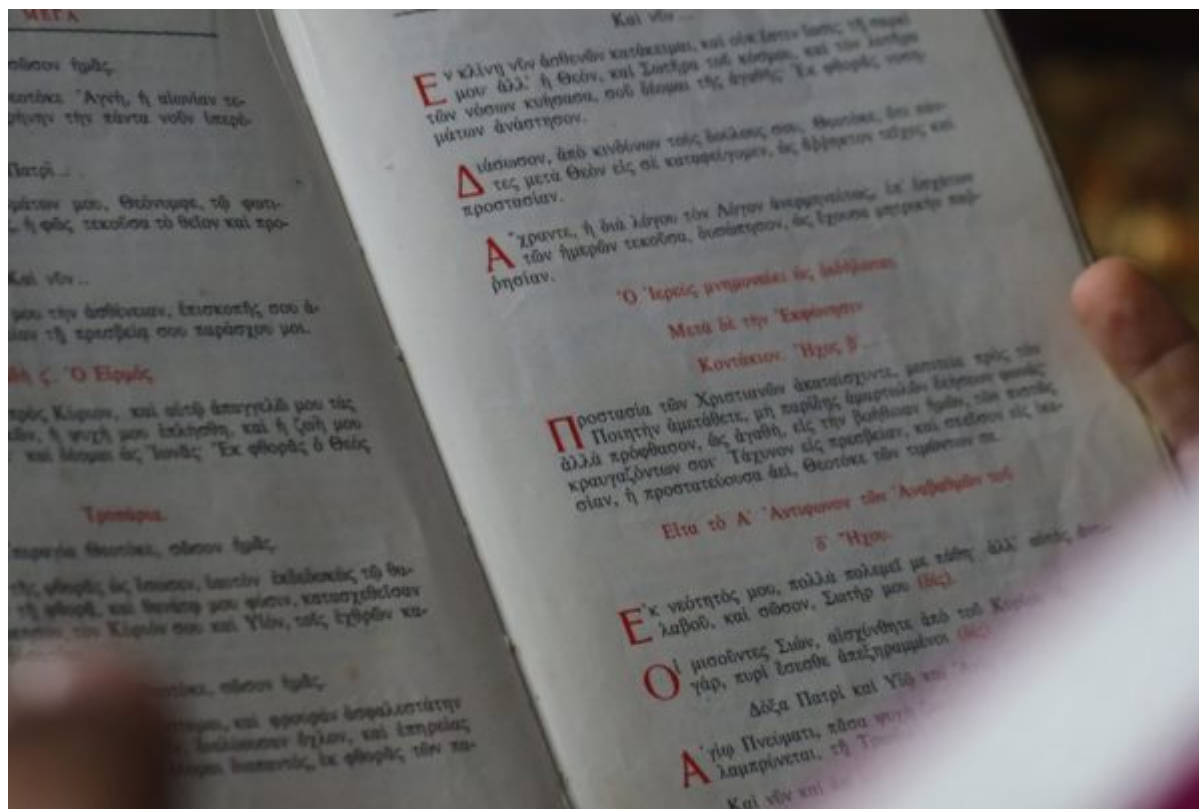 ΜΕΓΑ
σῶσον ἡμᾶς.
Θεοτόκε Ἁγνή, ἡ αἰωνίαν τε-
τὴν πάντα νοῦν ὑπερέ-
Πατρί...
μου, Θεόνυμφε, τῷ φωτι-
ἡ φῶς τεκοῦσα τὸ θεῖον καὶ προ-
Καὶ νῦν...
μου τὴν ἀσθένειαν, ἐπισκοπῆς σου ἀ-
τῇ πρεσβείᾳ σου παράσχου μοι.
ς. Ὁ Εἱρμός
πρὸς Κύριον, καὶ αὐτῷ ἀπαγγελῶ μου τὰς
ἡ ψυχή μου ἐπλήσθη, καὶ ἡ ζωή μου
καὶ δέομαι ὡς Ἰωνᾶς· Ἐκ φθορᾶς ὁ Θεὸς
Τροπάρια.
Θεοτόκε, σῶσον ἡμᾶς.
τῆς φθορᾶς ὡς ἔσωσεν, ἑαυτὸν ἐκδεδωκὼς τῷ θα-
τῇ φθορᾷ, καὶ θανάτῳ μου φύσιν, κατασχεθεῖσαν
τὸν Κύριόν σου καὶ Υἱόν, τοῖς ἐχθρῶν κα-
σῶσον ἡμᾶς.
καὶ φρουρὰν ἀσφαλεστάτην
ὄχλον, καὶ ἐπηρείας
διαπαντός, ἐκ φθορᾶς τῶν πα-
Καὶ νῦν...
Ἐν κλίνῃ νῦν ἀσθενῶν κατάκειμαι, καὶ οὐκ ἔστιν ἴασις τῇ σαρκί
μου· ἀλλ' ἡ Θεόν, καὶ Σωτῆρα τοῦ κόσμου, καὶ τὸν λυτῆρα
τῶν νόσων κυήσασα, σοῦ δέομαι τῆς ἀγαθῆς· Ἐκ φθορᾶς νοση-
μάτων ἀνάστησον.
Διάσωσον, ἀπὸ κινδύνων τοὺς δούλους σου, Θεοτόκε, ὅτι πάν-
τες μετὰ Θεὸν εἰς σὲ καταφεύγομεν, ὡς ἄρρηκτον τεῖχος καὶ
προστασίαν.
Ἄχραντε, ἡ διὰ λόγου τὸν Λόγον ἀνερμηνεύτως, ἐπ' ἐσχάτων
τῶν ἡμερῶν τεκοῦσα, δυσώπησον, ὡς ἔχουσα μητρικὴν παρ-
ρησίαν.
Ὁ Ἱερεὺς μνημονεύει ὡς δεδήλωται.
Μετὰ δὲ τὴν Ἐκφώνησιν
Κοντάκιον. Ἦχος β'.
Προστασία τῶν Χριστιανῶν ἀκαταίσχυντε, μεσιτεία πρὸς τὸν
Ποιητὴν ἀμετάθετε, μὴ παρίδῃς ἁμαρτωλῶν δεήσεων φωνάς·
ἀλλὰ πρόφθασον, ὡς ἀγαθή, εἰς τὴν βοήθειαν ἡμῶν, τῶν πιστῶς
κραυγαζόντων σοι· Τάχυνον εἰς πρεσβείαν, καὶ σπεῦσον εἰς ἱκε-
σίαν, ἡ προστατεύουσα ἀεί, Θεοτόκε τῶν τιμώντων σε.
Εἶτα τὸ Α' Ἀντίφωνον τῶν Ἀναβαθμῶν τοῦ
δ' Ἤχου.
Ἐκ νεότητός μου, πολλὰ πολεμεῖ με πάθη· ἀλλ' αὐτὸς ἀντι-
λαβοῦ, καὶ σῶσον, Σωτήρ μου (δίς).
Οἱ μισοῦντες Σιών, αἰσχύνθητε ἀπὸ τοῦ
γάρ, πυρὶ ἔσεσθε ἀπεξηραμμένοι (δίς)
Δόξα Πατρὶ καὶ Υἱῷ καὶ
Ἁγίῳ Πνεύματι, πᾶσα ψυχὴ
λαμπρύνεται, τῇ
Καὶ νῦν καὶ